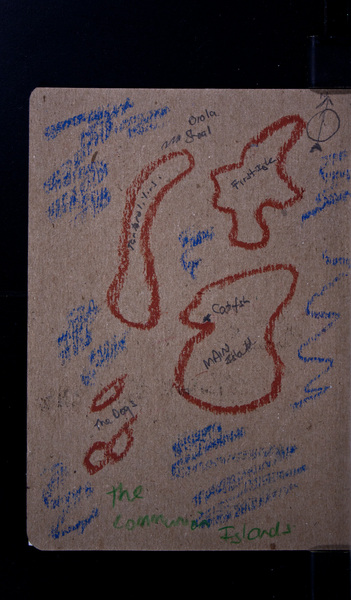 Orola
Shoal
First Isle
Codfish
MAIN
Island
The Dog's
the
communion
Islands